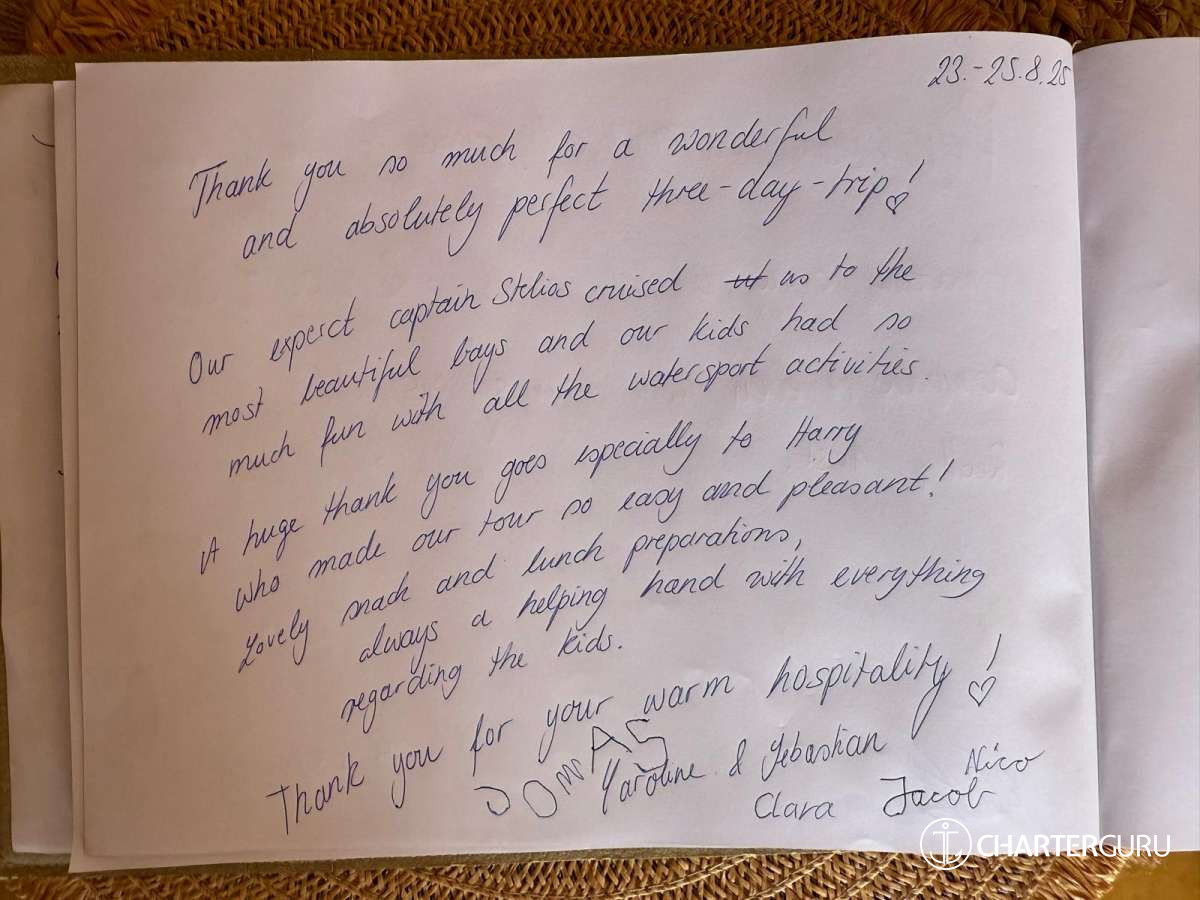 23.-25.8.25
Thank you so much for a wonderful
and absolutely perfect three-day-trip!
Our experct captain Stelios cruised us to the
most beautiful bays and our kids had so
much fun with all the watersport activities.
A huge thank you goes especially to Harry
who made our tour so easy and pleasant!
Lovely snack and lunch preparations,
always a helping hand with everything
regarding the kids.
Thank you for your warm hospitality!
Karoline & Sebastian
Nico
Clara Jacob
CHARTERGURU